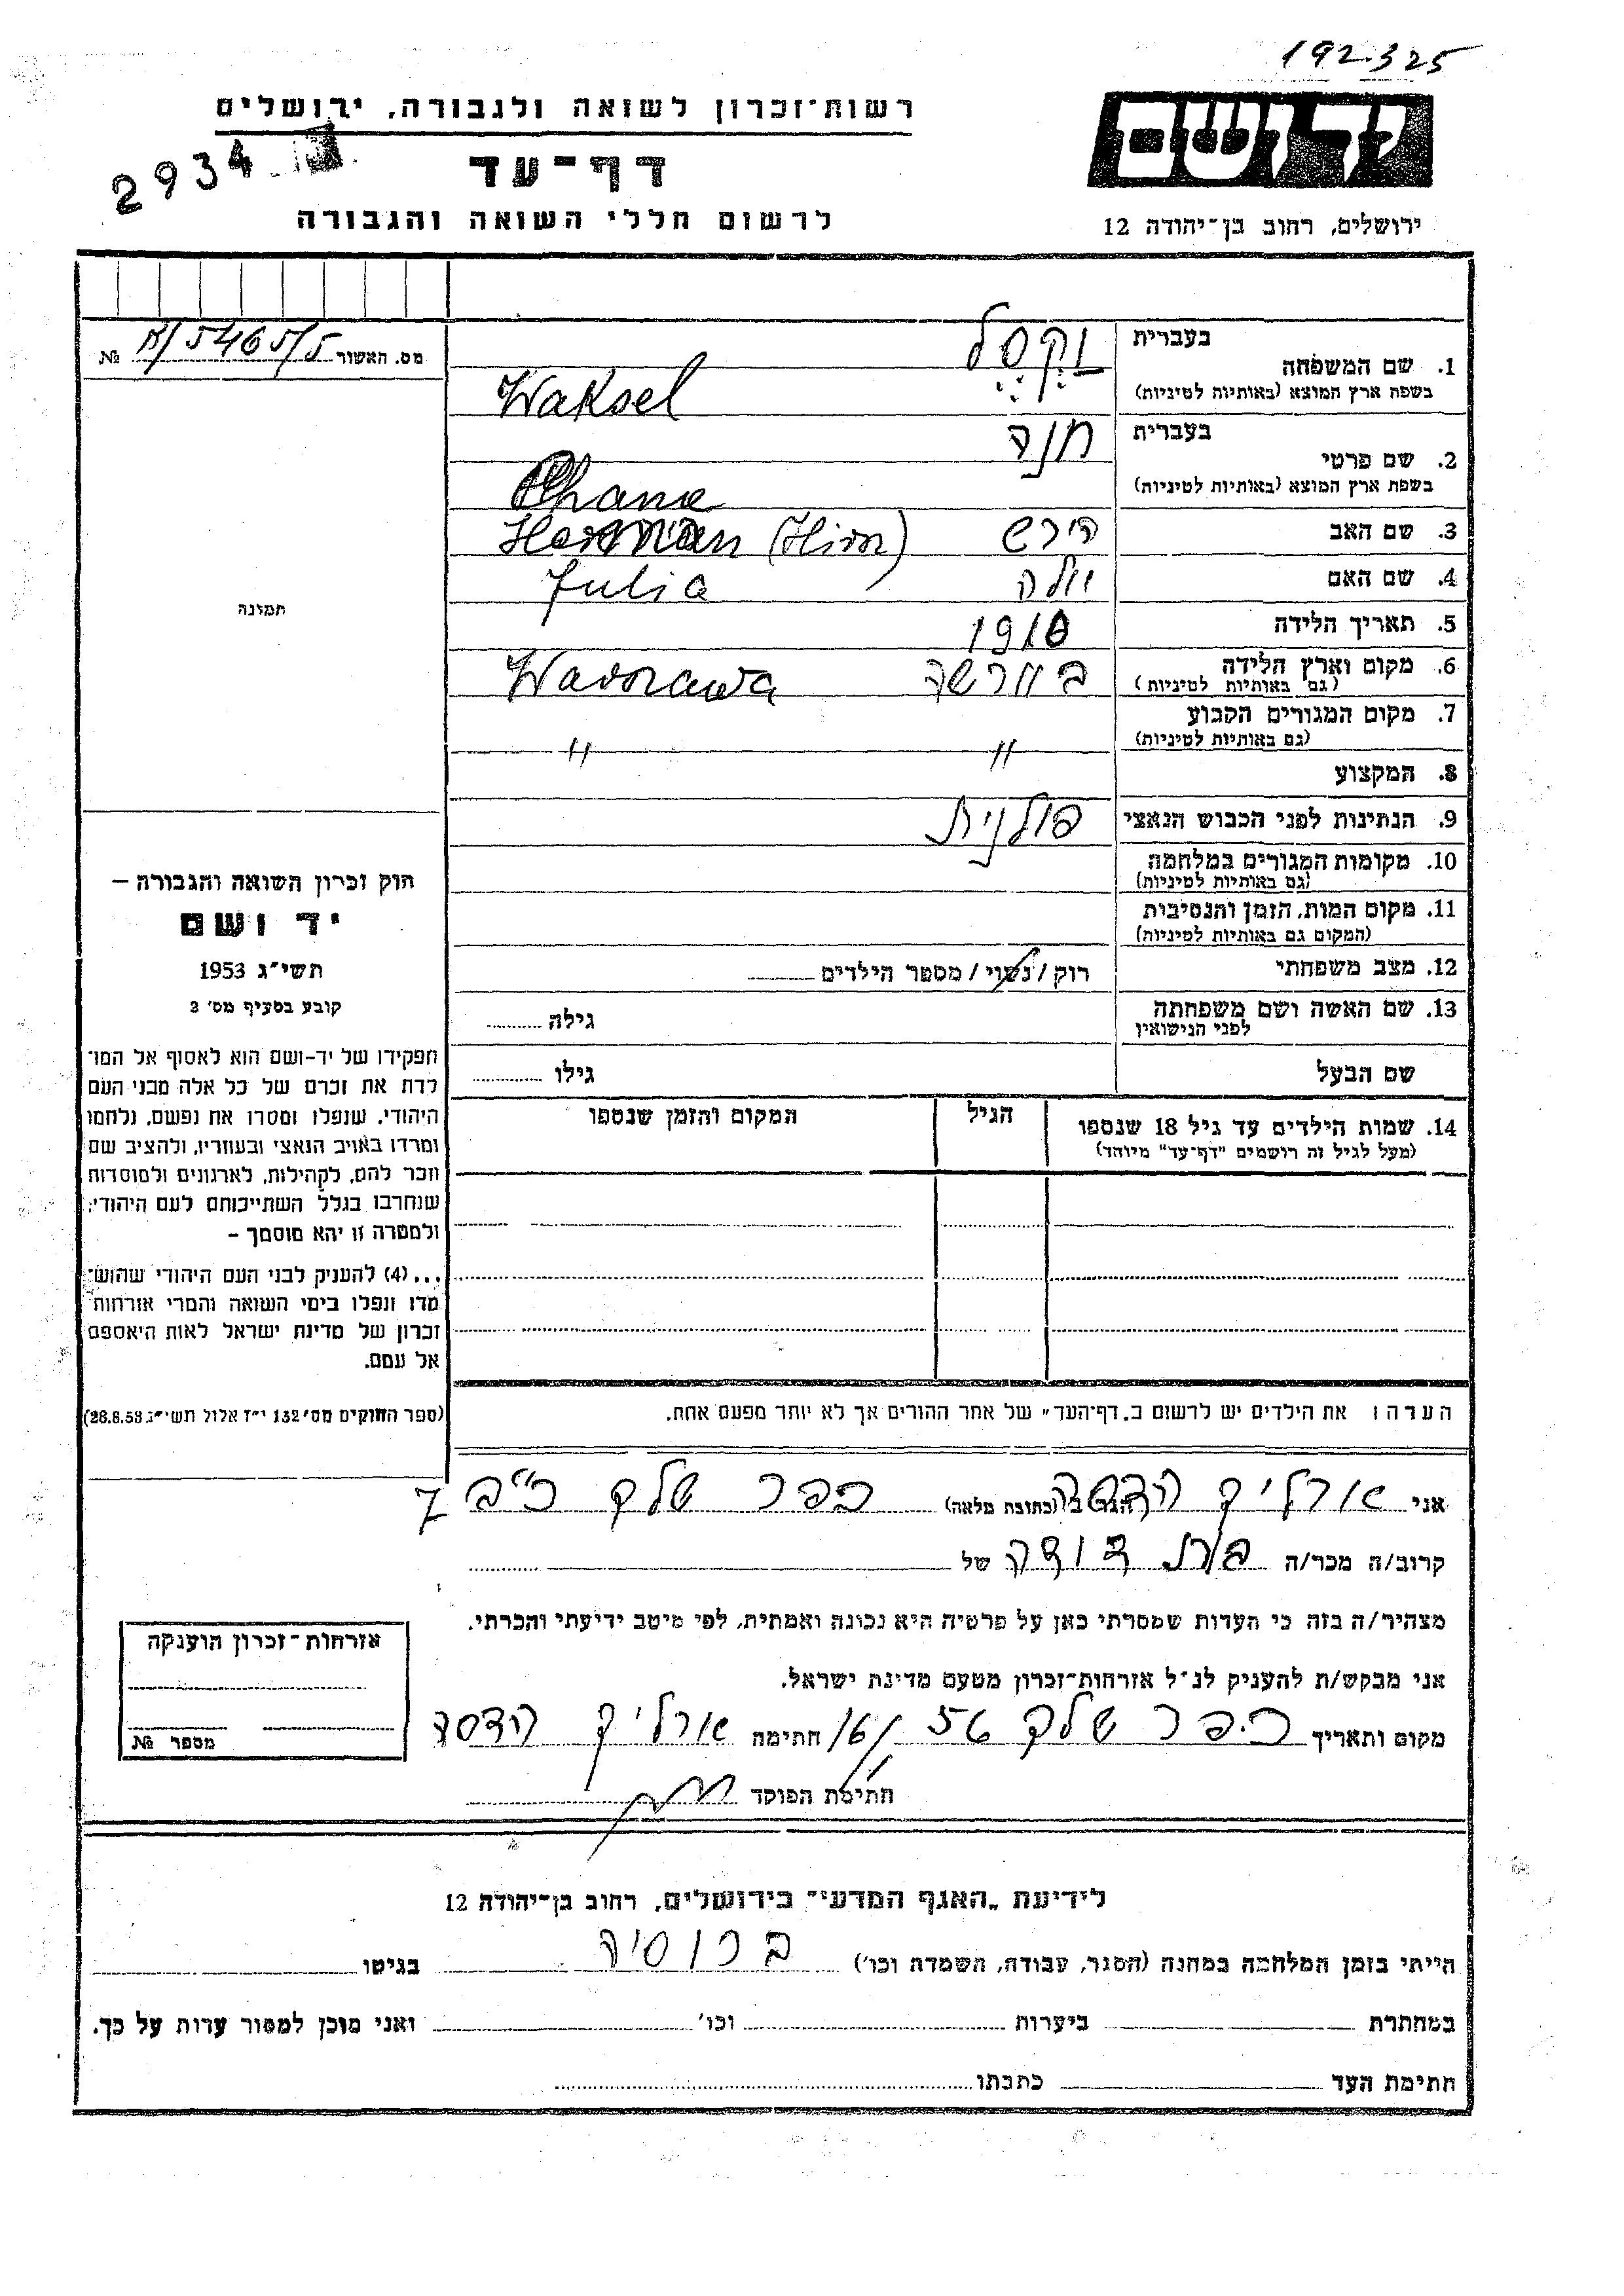 192.325
רשות־זכרון לשואה ולגבורה, ירושלים
2934
דף־עד
לרשום חללי השואה והגבורה
יד ושם
ירושלים, רחוב בן־יהודה 12
מס. האשור 5465/5 №
תמונה
1. שם המשפחה
בעברית
וקסל
בשפת ארץ המוצא (באותיות לטיניות)
Waksel
2. שם פרטי
בעברית
חנה
בשפת ארץ המוצא (באותיות לטיניות)
Chana
3. שם האב
הירש Herman
4. שם האם
יולה Julia
5. תאריך הלידה
1910
6. מקום וארץ הלידה
(גם באותיות לטיניות)
בוורשה Warszawa
7. מקום המגורים הקבוע
(גם באותיות לטיניות)
" "
8. המקצוע
9. הנתינות לפני הכבוש הנאצי
פולנית
10. מקומות המגורים במלחמה
(גם באותיות לטיניות)
11. מקום המות, הזמן והנסיבות
(המקום גם באותיות לטיניות)
12. מצב משפחתי
רוק / נשוי / מספר הילדים
13. שם האשה ושם משפחתה
לפני הנישואין
גילה
שם הבעל
גילו
14. שמות הילדים עד גיל 18 שנספו
(מעל לגיל זה רושמים "דף־עד" מיוחד)
הגיל
המקום והזמן שנספו
חוק זכרון השואה והגבורה –
יד ושם
תשי״ג 1953
קובע בסעיף מס׳ 2
תפקידו של יד-ושם הוא לאסוף אל המו־
לדת את זכרם של כל אלה מבני העם
היהודי, שנפלו ומסרו את נפשם, נלחמו
ומרדו באויב הנאצי ובעוזריו, ולהציב שם
וזכר להם, לקהילות, לארגונים ולמוסדות
שנחרבו בגלל השתייכותם לעם היהודי;
ולמטרה זו יהא מוסמך –
...(4) להעניק לבני העם היהודי שהוש־
מדו ונפלו בימי השואה והמרי אזרחות־
זכרון של מדינת ישראל לאות היאספם
אל עמם.
(ספר החוקים מס׳ 132 י״ז אלול תשי״ג 28.8.53)
הערה: את הילדים יש לרשום ב„דף־העד״ של אחד ההורים אך לא יותר מפעם אחת.
אני ארליך הדסה הגר ב (כתובת מלאה) כפר שלם כ״ב 7
קרוב/ה מכר/ה בת דודה של
מצהיר/ה בזה כי העדות שמסרתי כאן על פרטיה היא נכונה ואמתית, לפי מיטב ידיעתי והכרתי.
אני מבקש/ת להעניק לנ״ל אזרחות־זכרון מטעם מדינת ישראל.
מקום ותאריך כפר שלם חתימה ארליך הדסה
חתימת הפוקד
אזרחות־זכרון הוענקה
מספר №
לידיעת „האגף המדעי״ בירושלים, רחוב בן־יהודה 12
הייתי בזמן המלחמה במחנה (הסגר, עבודה, השמדה וכו׳) ברוסיה בגיטו
במחתרת ביערות וכו׳ ואני מוכן למסור עדות על כך.
חתימת העד כתבתו